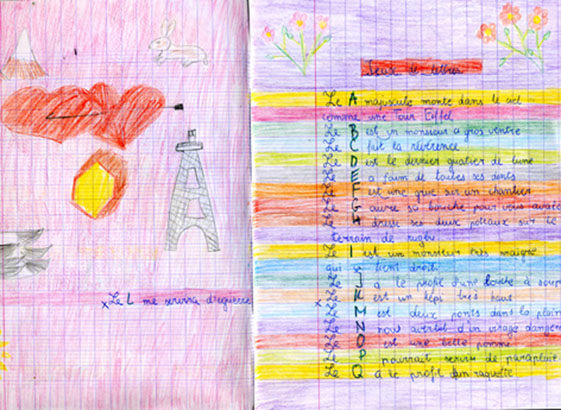 x Le L me servira d'equerre
Jeux de lettres
Le A majuscule monte dans le ciel
comme une Tour Eiffel
Le B est un monsieur a gros ventre
Le C fait la révérence
Le D est le dernier quatier de lune
Le E a faim de toutes ses dents
Le F est une grue sur un chantier
Le G ouvre sa bouche pour vous avale
Le H dresse ses deux poteaux sur le
terrain de rugbi
Le I est un monsieur très maigre
qui se tient droit
Le J a le profil d'une louche à soup
x Le K est un képi très haut
Le M est deux ponts dans la plain
Le N nous avertit d'un virage dangere
Le O est une belle pomme
Le P pourrait servir de parapluie
Le Q a le profil d'un raquette